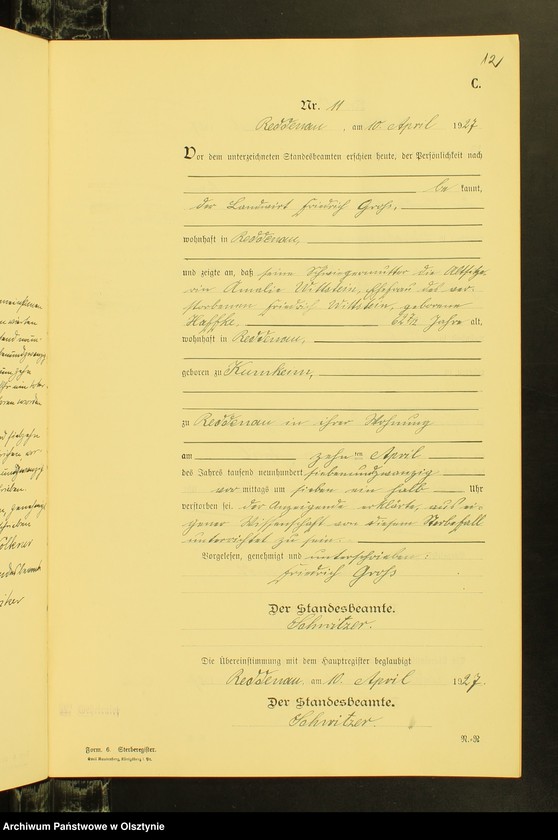 12
C.
Nr. 11
Reddenau, am 10. April 1927
Vor dem unterzeichneten Standesbeamten erschien heute, der Persönlichkeit nach
be kannt,
der Landwirt Friedrich Groß,
wohnhaft in Reddenau,
und zeigte an, daß seine Schwiegermutter die Altsitze-
rin Amalie Wittstein, Ehefrau des ver-
storbenen Friedrich Wittstein, geborene
Haffke, Jahre alt,
wohnhaft in Reddenau,
geboren zu Kumkeim,
zu Reddenau in ihrer Wohnung
am zehnten April
des Jahres tausend neunhundert siebenundzwanzig
vor mittags um sieben ein halb Uhr
verstorben sei. Der Anzeigende erklärte, aus ei-
gener Wissenschaft von diesem Sterbefall
unterrichtet zu sein.
Vorgelesen, genehmigt und unterschrieben:
Friedrich Groß
Der Standesbeamte.
Schwitzer.
Die Übereinstimmung mit dem Hauptregister beglaubigt
Reddenau, am 10. April 1927.
Der Standesbeamte.
Schwitzer.
R.-R
Form. 6. Sterberegister.
Archiwum Państwowe w Olsztynie